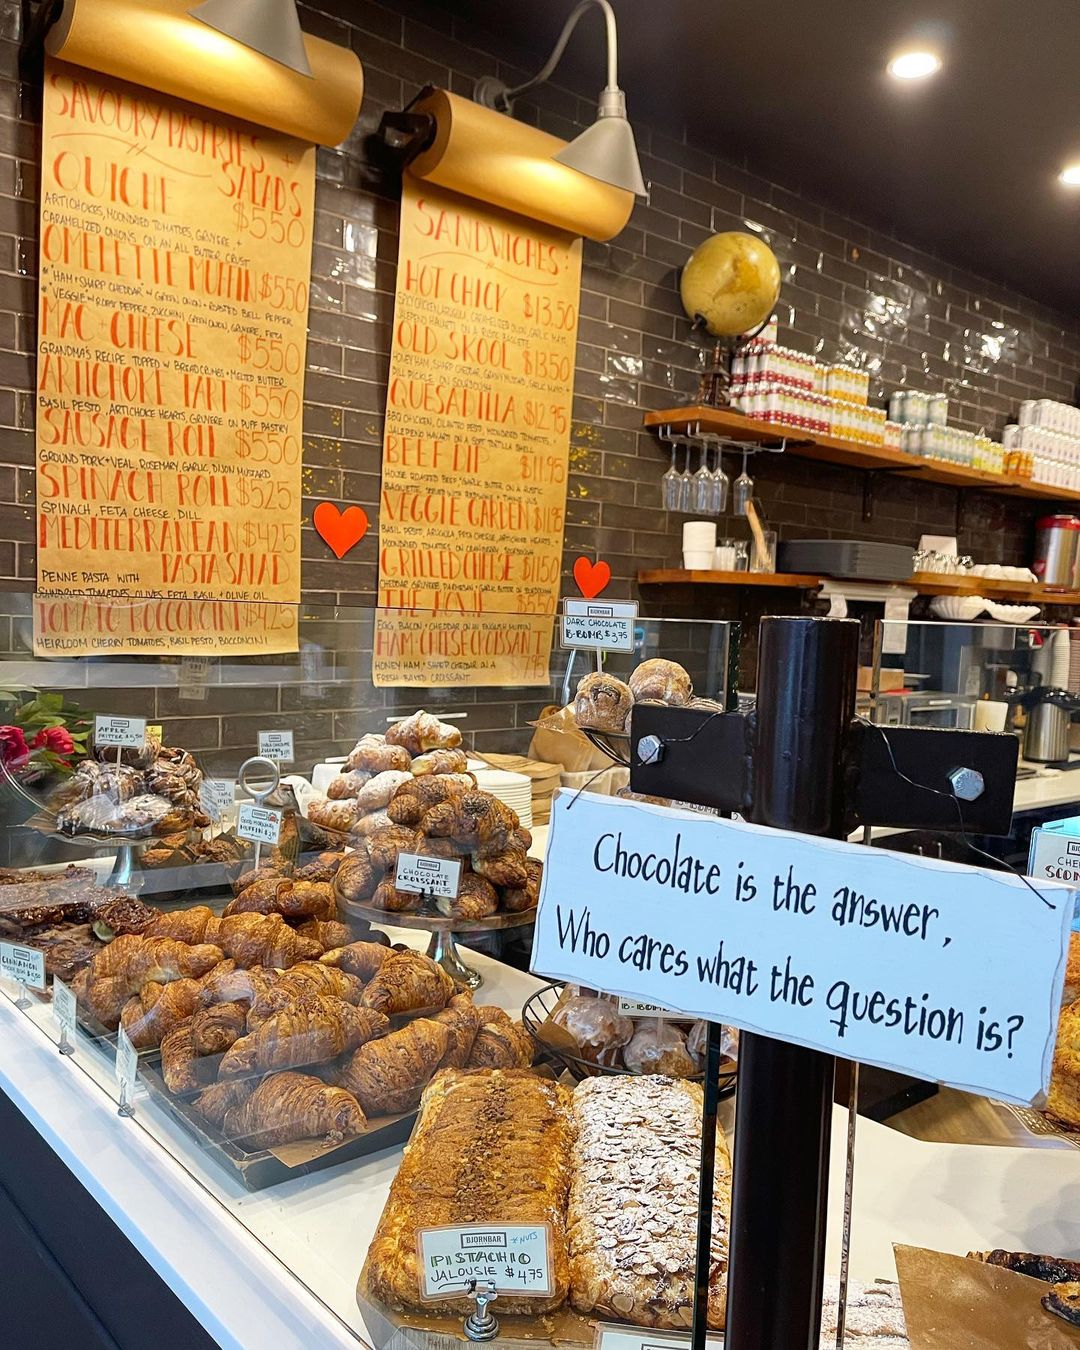 SAVOURY PASTRIES +
SALADS
QUICHE $5.50
ARTICHOKES, MOONDRIED TOMATOES, GRUYERE +
CARAMELIZED ONIONS ON AN ALL BUTTER CRUST
OMELETTE MUFFIN $5.50
HAM + SHARP CHEDDAR W GREEN ONION + ROASTED BELL PEPPER
VEGGIE W ROAST PEPPER, ZUCCHINI, GREEN ONION, GRUYERE, FETA
MAC + CHEESE $5.50
GRANDMA'S RECIPE TOPPED W BREADCRUMBS + MELTED BUTTER
ARTICHOKE TART $5.50
BASIL PESTO, ARTICHOKE HEARTS, GRUYERE ON PUFF PASTRY
SAUSAGE ROLL $5.50
GROUND PORK + VEAL, ROSEMARY, GARLIC, DIJON MUSTARD
SPINACH ROLL $5.25
SPINACH, FETA CHEESE, DILL
MEDITERRANEAN $4.25
PASTA SALAD
PENNE PASTA WITH
SUNDRIED TOMATOES, OLIVES, FETA, BASIL + OLIVE OIL
TOMATO BOCCONCINI $4.25
HEIRLOOM CHERRY TOMATOES, BASIL PESTO, BOCCONCINI
SANDWICHES
HOT CHICK $13.50
OLD SKOOL $13.50
HONEY HAM, SHARP CHEDDAR, GRAINY MUSTARD, GARLIC MAYO +
DILL PICKLE ON SOURDOUGH
QUESADILLA $12.95
BBQ CHICKEN, CILANTRO PESTO, MOONDRIED TOMATOES,
JALEPENO HAVARTI ON A SOFT TORTILLA SHELL
BEEF DIP $11.95
HOUSE ROASTED BEEF, GARLIC BUTTER ON A RUSTIC
VEGGIE GARDEN $11.95
BASIL PESTO, ARUGULA, FETA CHEESE, ARTICHOKE HEARTS +
MOONDRIED TOMATOES ON CRANBERRY SOURDOUGH
GRILLED CHEESE $11.50
CHEDDAR, GRUYERE, PARMESAN + GARLIC BUTTER ON SOURDOUGH
$5.50
EGG, BACON + CHEDDAR ON ENGLISH MUFFIN
HAM CHEESE CROISSANT
7.95
HONEY HAM + SHARP CHEDAR ON A
FRESH BAKED CROISSANT
BJORNBAR
DARK CHOCOLATE
B-BOMB $3.75
APPLE
FRITTER
GOOD MORNING
MUFFIN
BJORNBAR
CHOCOLATE
CROISSANT
$4.75
CINNAMON
Chocolate is the answer,
Who cares what the question is?
BJORNBAR
*NUTS
PISTACHIO
JALOUSIE $4.75